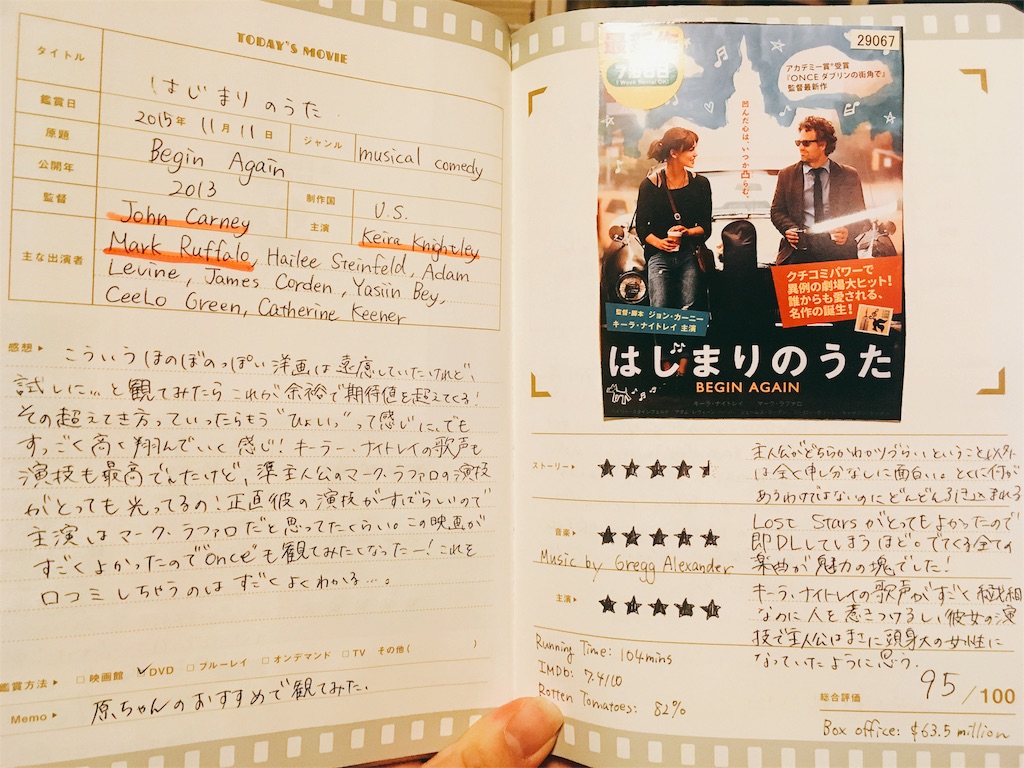 TODAY'S MOVIE
タイトル はじまりのうた
鑑賞日 2015年 11月 11日 ジャンル musical comedy
原題 Begin Again
公開年 2013 制作国 U.S.
監督 John Carney 主演 Keira Knightley
主な出演者 Mark Ruffalo, Hailee Steinfeld, Adam
Levine, James Corden, Yasiin Bey,
CeeLo Green, Catherine Keener
感想
こういうほのぼのっぽい洋画は遠慮していたけれど、
試しに…と観てみたらこれが余裕で期待値を超えてくる!
その超えてき方っていったらもう"ひょいっ"って感じに、でも
すっごく高く翔んでいく感じ!キーラ・ナイトレイの歌声も
演技も最高でしたけど、準主人公のマーク・ラファロの演技
がとっても光ってるの!正直彼の演技がすばらしいので
主演はマーク・ラファロだと思ってたくらい。この映画が
すごくよかったので"Once"も観てみたくなったー!これを
口コミしちゃうのはすごくよくわかる…。
鑑賞方法 □映画館 ✓DVD □ブルーレイ □オンデマンド □TV その他( )
Memo 原ちゃんのおすすめで観てみた。
29067
最新作
7泊8日
1 Week Rental OK!
アカデミー賞®受賞
『ONCE ダブリンの街角で』
監督最新作
凹んだ心は、いつか凸らむ。
クチコミパワーで
異例の劇場大ヒット!
誰からも愛される、
名作の誕生!
監督・脚本 ジョン・カーニー
キーラ・ナイトレイ 主演
はじまりのうた
BEGIN AGAIN
キーラ・ナイトレイ マーク・ラファロ
ストーリー
主人公がどちらかわかりづらいということ以外
は全く申し分なしに面白い。とくに何が
あるわけではないのにどんどん引き込まれる
音楽
Music by Gregg Alexander
Lost Starsがとってもよかったので
即DLしてしまうほど。でてくる全ての
楽曲が魅力の塊でした!
主演
キーラ・ナイトレイの歌声がすごく
なのに人を惹きつけるし、彼女の演
技で主人公はまさに等身大の女性に
なっていたように思う。
Running Time: 104mins
IMDb: 7.4/10
Rotten Tomatoes: 82%
総合評価 95/100
Box office: $63.5 million